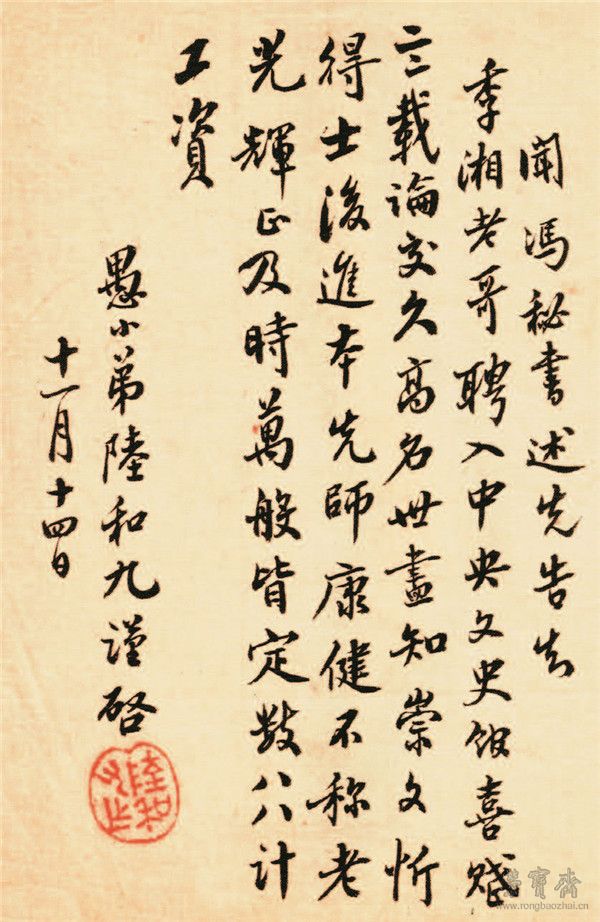 聞馮秘書述先告知
季湘老哥聘入中央文史館喜賦
三載論交久高名世盡知崇文忻
得士後進本先師康健不称老
光輝正及時萬般皆定数八八計
工資
愚小弟陸和九謹啓
十一月十四日
榮寶齋
www.rongbaozhai.cn